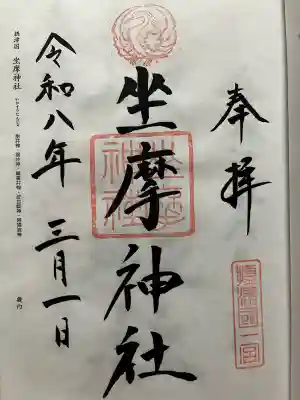 奉拝
摂津国一宮
坐摩神社
坐摩神社
令和八年 三月一日
摂津国 坐摩神社